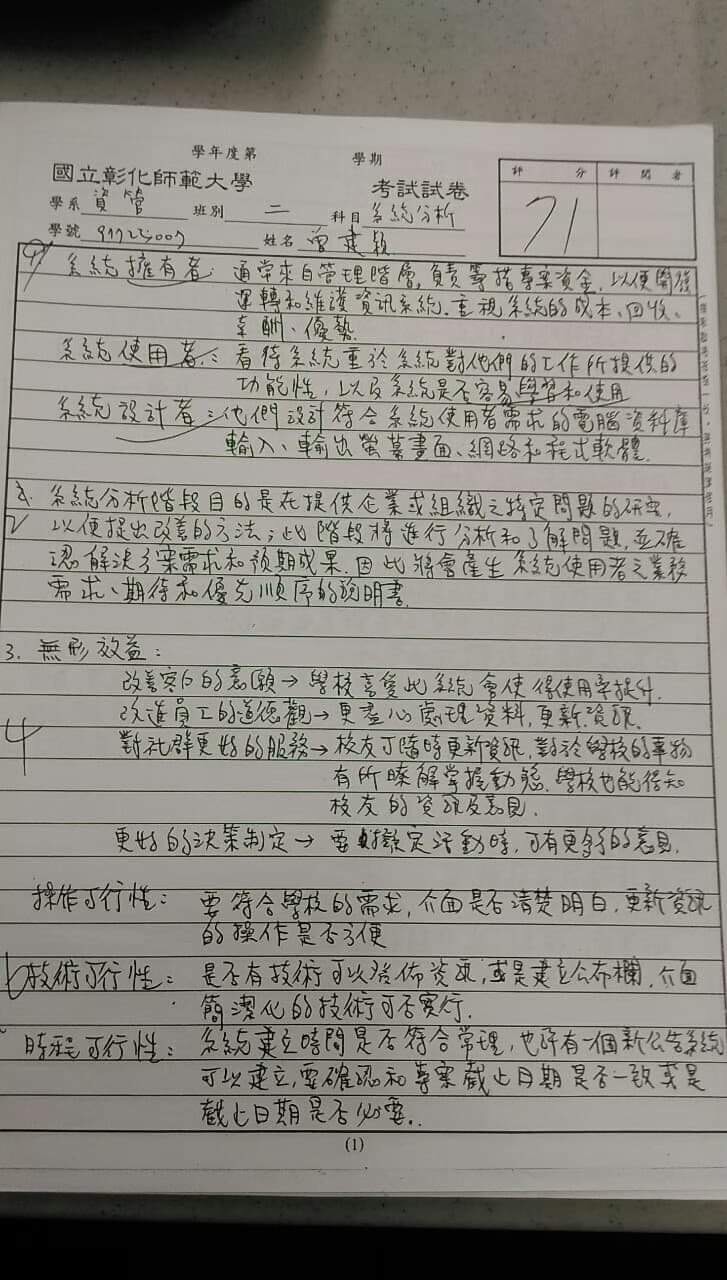 學年度第 學期
國立彰化師範大學 考試試卷
評 分 評閱者
71
學系 資管 班別 二 科目 系統分析
學號 姓名 曾建穎
系統擁有者: 通常來自管理階層,負責籌措專案資金,以便開發
運轉和維護資訊系統.重視系統的成本、回收、
報酬、優勢.
系統使用者: 看待系統重於系統對他們的工作所提供的
功能性,以及系統是否容易學習和使用
系統設計者: 他們設計符合系統使用者需求的電腦資料庫
輸入、輸出螢幕畫面、網路和程式軟體.
2. 系統分析階段目的是在提供企業或組織之特定問題的研究,
以便提出改善的方法;此階段將進行分析和了解問題,並確
認解決方案需求和預期成果.因此將會產生系統使用者之業務
需求、期待和優先順序的說明書.
3. 無形效益:
改善客戶的意願→學校喜愛此系統會使得使用率提升.
改進員工的道德觀→更盡心處理資料,更新資訊.
4
對社群更好的服務→校友可隨時更新資訊,對於學校的事物
有所瞭解掌握動態.學校也能得知
校友的資訊及意見.
更好的決策制定→要擬定活動時,可有更多的意見.
操作可行性: 要符合學校的需求,介面是否清楚明白,更新資訊
的操作是否方便
技術可行性: 是否有技術可以發佈資訊,或是建立公布欄,介面
簡潔化的技術可否實行.
時程可行性: 系統建立時間是否符合常理,也許有一個新公告系統
可以建立,要確認和專案截止日期是否一致或是
截止日期是否必要..
(1)